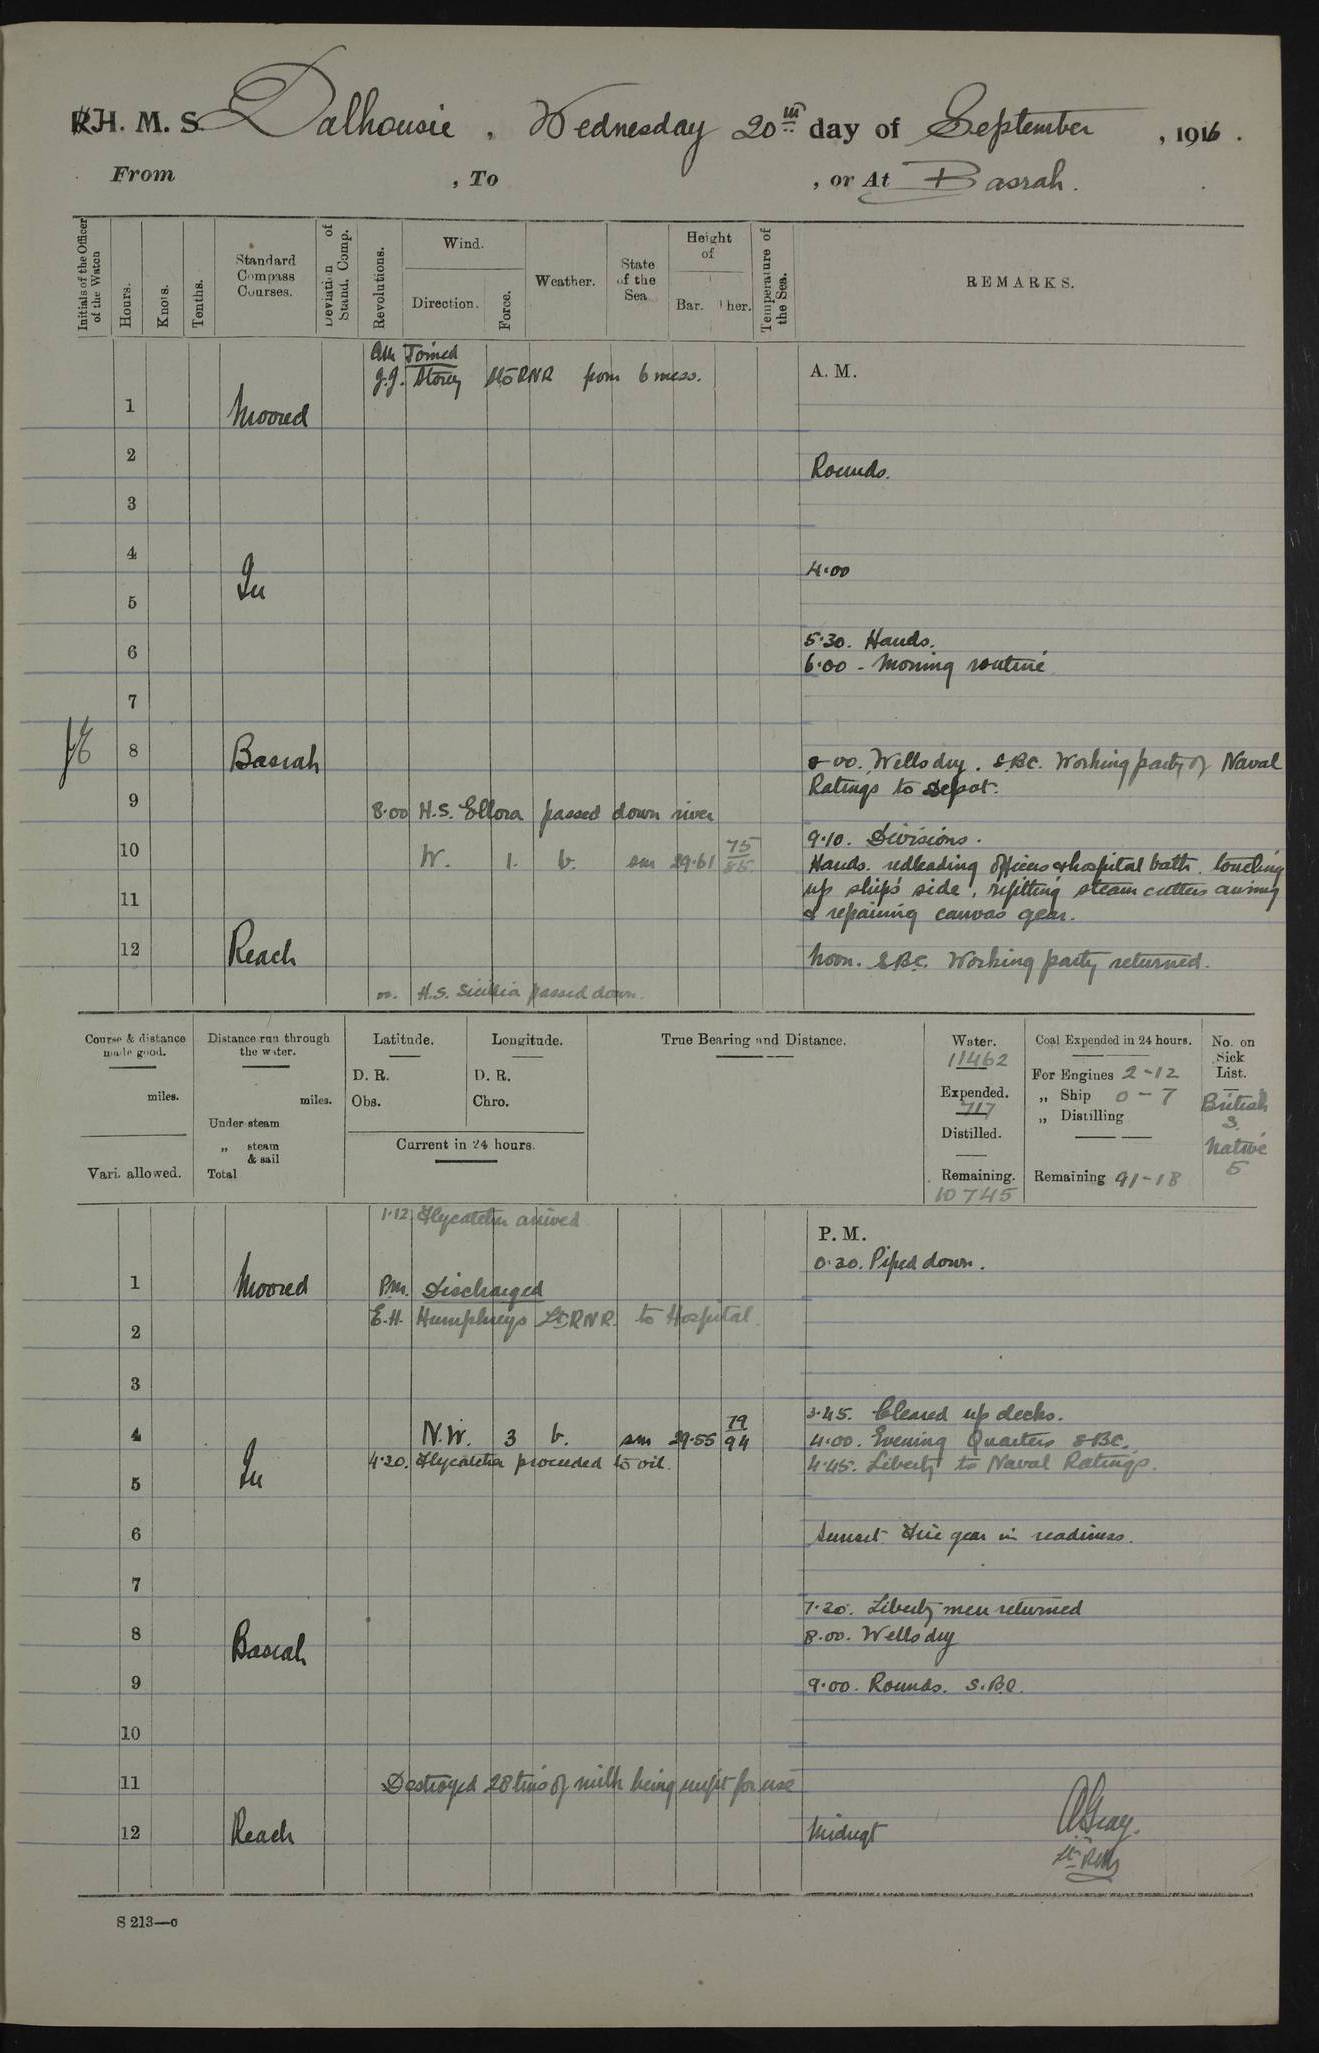 R.I.M. S. Dalhousie, Wednesday 20th day of September, 1916.
From , To , or At Basrah.
Initials of the Officer of the Watch
Hours.
Knots.
Tenths.
Standard Compass Courses.
Deviation of Stand. Comp.
Revolutions.
Wind.
Direction.
Force.
Weather.
State of the Sea
Height of
Bar.
Ther.
Temperature of the Sea.
REMARKS.
AM Joined
J.J. Storey RNR from 6 mess.
A. M.
1 Moored
2 Rounds.
3
4 In 4.00
5
5.30. Hands.
6 6.00 - Morning routine
7
8 Basrah 8.00. Wells dry. SBC. Working party of Naval
Ratings to Depot.
9 8.00 H.S. Ellora passed down river
9.10. Divisions.
10 W. 1. b. sm 29.61 75/85 Hands. redleading officers & hospital bath. touching
11 up ship's side, refitting steam cutters awning
& repairing canvas gear.
12 Reach Noon. SBC. Working party returned.
H.S. Sicilia passed down.
Course & distance made good.
miles.
Vari. allowed.
Distance run through the water.
miles.
Under steam
„ steam & sail
Total
Latitude.
D. R.
Obs.
Longitude.
D. R.
Chro.
Current in 24 hours.
True Bearing and Distance.
Water.
11462
Expended.
717
Distilled.
Remaining.
10745
Coal Expended in 24 hours.
For Engines 2-12
„ Ship 0-7
„ Distilling
Remaining 91-18
No. on Sick List.
British
3.
Native
5
1.12 Flycatcher arrived
P. M.
0.30. Piped down.
1 Moored P.M. Discharged
E.H. Humphreys Lt RNR. to Hospital.
2
3
3.45. Cleared up decks.
4 N.W. 3 b. sm 29.55 79/94 4.00. Evening Quarters SBC.
4.20. Flycatcher proceeded to oil. 4.45. Liberty to Naval Ratings.
5 In
6 Sunset Fire gear in readiness.
7
7.20. Liberty men returned
8 Basrah 8.00. Wells dry
9 9.00. Rounds. S.B.C.
10
11 Destroyed 28 tins of milk being unfit for use
12 Reach Midngt
AGray.
Lt RIM
S 213—c